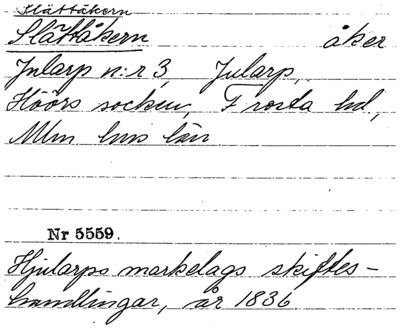 Slättåkern
Slättåkern åker
Jularp n:r 3, Jularp,
Höörs socken, Frosta hd,
Mlm hus län
Nr 5559.
Hjularps markelags skiftes-
handlingar, år 1836